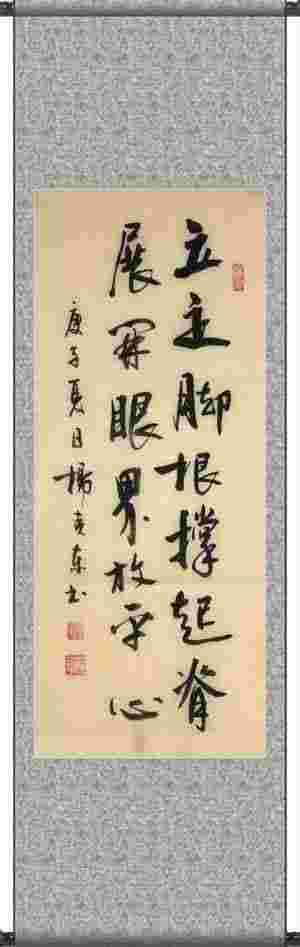 立定脚根撑起脊
展開眼界放平心
庚子夏日楊东书